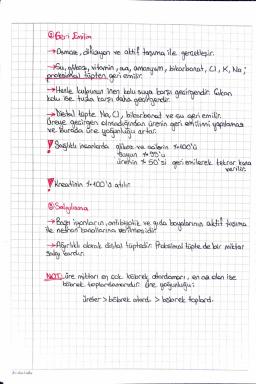 ② Geri Emilim
→ Osmoz, difüzyon ve aktif taşıma ile gerçekleşir.
→ Su, glikoz, vitamin, aa, amonyum, bikarbonat, Cl, K, Na;
proksimal tüpten geri emilir.
→ Henle kulpunun inen kolu suya karşı geçirgendir. Çıkan
kolu ise tuza karşı daha geçirgendir.
→ Distal tüpte Na, Cl, bikarbonat ve su geri emilir.
Üreye geçirgen olmadığından ürenin geri emilimi yapılamaz
ve burada üre yoğunluğu artar.
! Sağlıklı insanlarda glikoz ve aa'lerin %100'ü
Suyun %99'u
ürenin %50'si geri emilerek tekrar kana
verilir.
! Kreatinin %100'ü atılır.
③ Salgılama
→ Bazı iyonların, antibiyotik ve gıda boyalarının aktif taşıma
ile nefron kanallarına verilmesidir.
→ Ağırlıklı olarak distal tüptedir. Proksimal tüpte de bir miktar
salgı vardır.
NOT: üre miktarı en çok böbrek atardamarı, en az olan ise
böbrek toplardamarıdır. Üre yoğunluğu:
üreter > böbrek atard. > böbrek toplard.